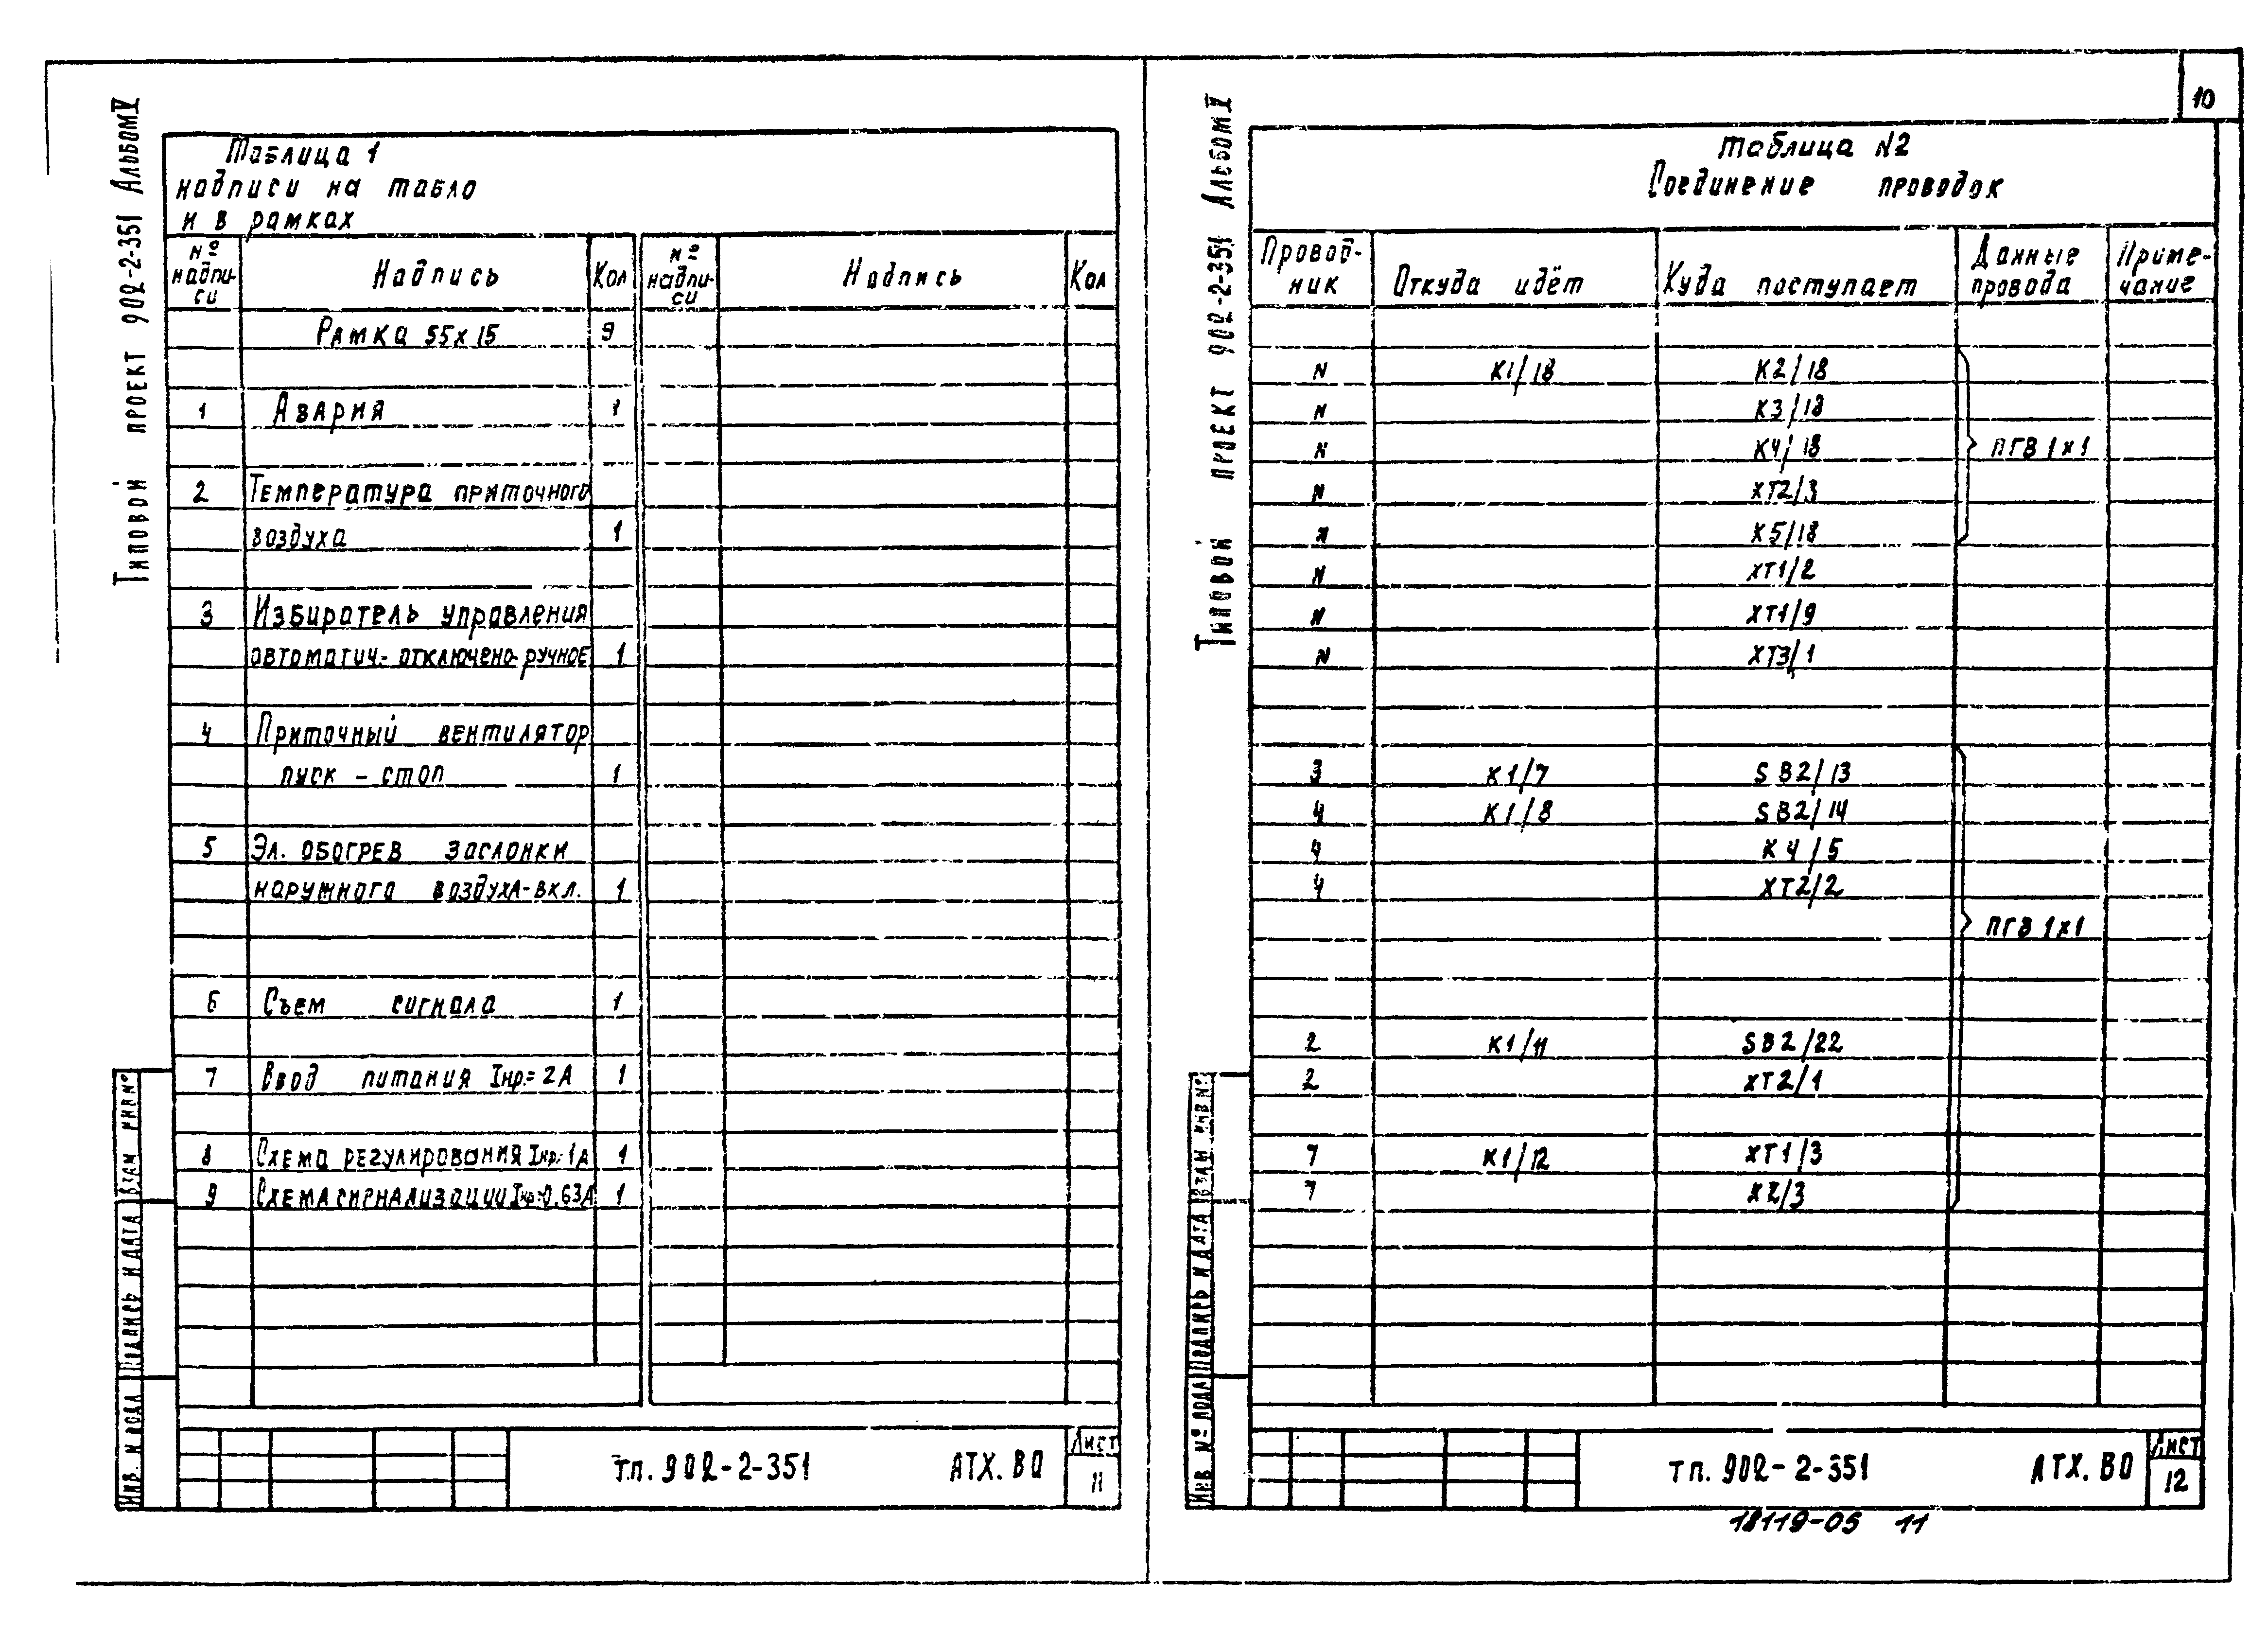 10
Типовой проект 902-2-351 Альбом V
Таблица 1
надписи на табло
и в рамках
№ надпи-си Надпись Кол № надпи-си Надпись Кол
Рамка 55х15 9
1 Авария 1
2 Температура приточного
воздуха 1
3 Избиратель управления
автоматич.-отключено-ручное 1
4 Приточный вентилятор
пуск – стоп 1
5 Эл. обогрев заслонки
наружного воздуха-вкл. 1
6 Съем сигнала 1
7 Ввод питания Iнр.=2А 1
8 Схема регулирования Iнр.=1А 1
9 Схема сигнализации Iнр=0,63А 1
Инв. № подл Подпись и дата Взам инв№
т.п. 902-2-351 АТХ. ВО Лист 11
Типовой проект 902-2-351 Альбом V
Таблица №2
Соединение проводок
Провод-ник Откуда идёт Куда поступает Данные провода Приме-чание
N К1/18 К2/18
N К3/18
N К4/18 ПГВ 1х1
N ХТ2/3
N К5/18
N ХТ1/2
N ХТ1/9
N ХТ3/1
3 К1/7 SB2/13
4 К1/8 SB2/14
4 К4/5
4 ХТ2/2
ПГВ 1х1
2 К1/11 SB2/22
2 ХТ2/1
7 К1/12 ХТ1/3
7 К2/3
Инв № подл Подпись и дата Взам инв№
тп. 902-2-351 АТХ. ВО Лист 12
18119-05 11